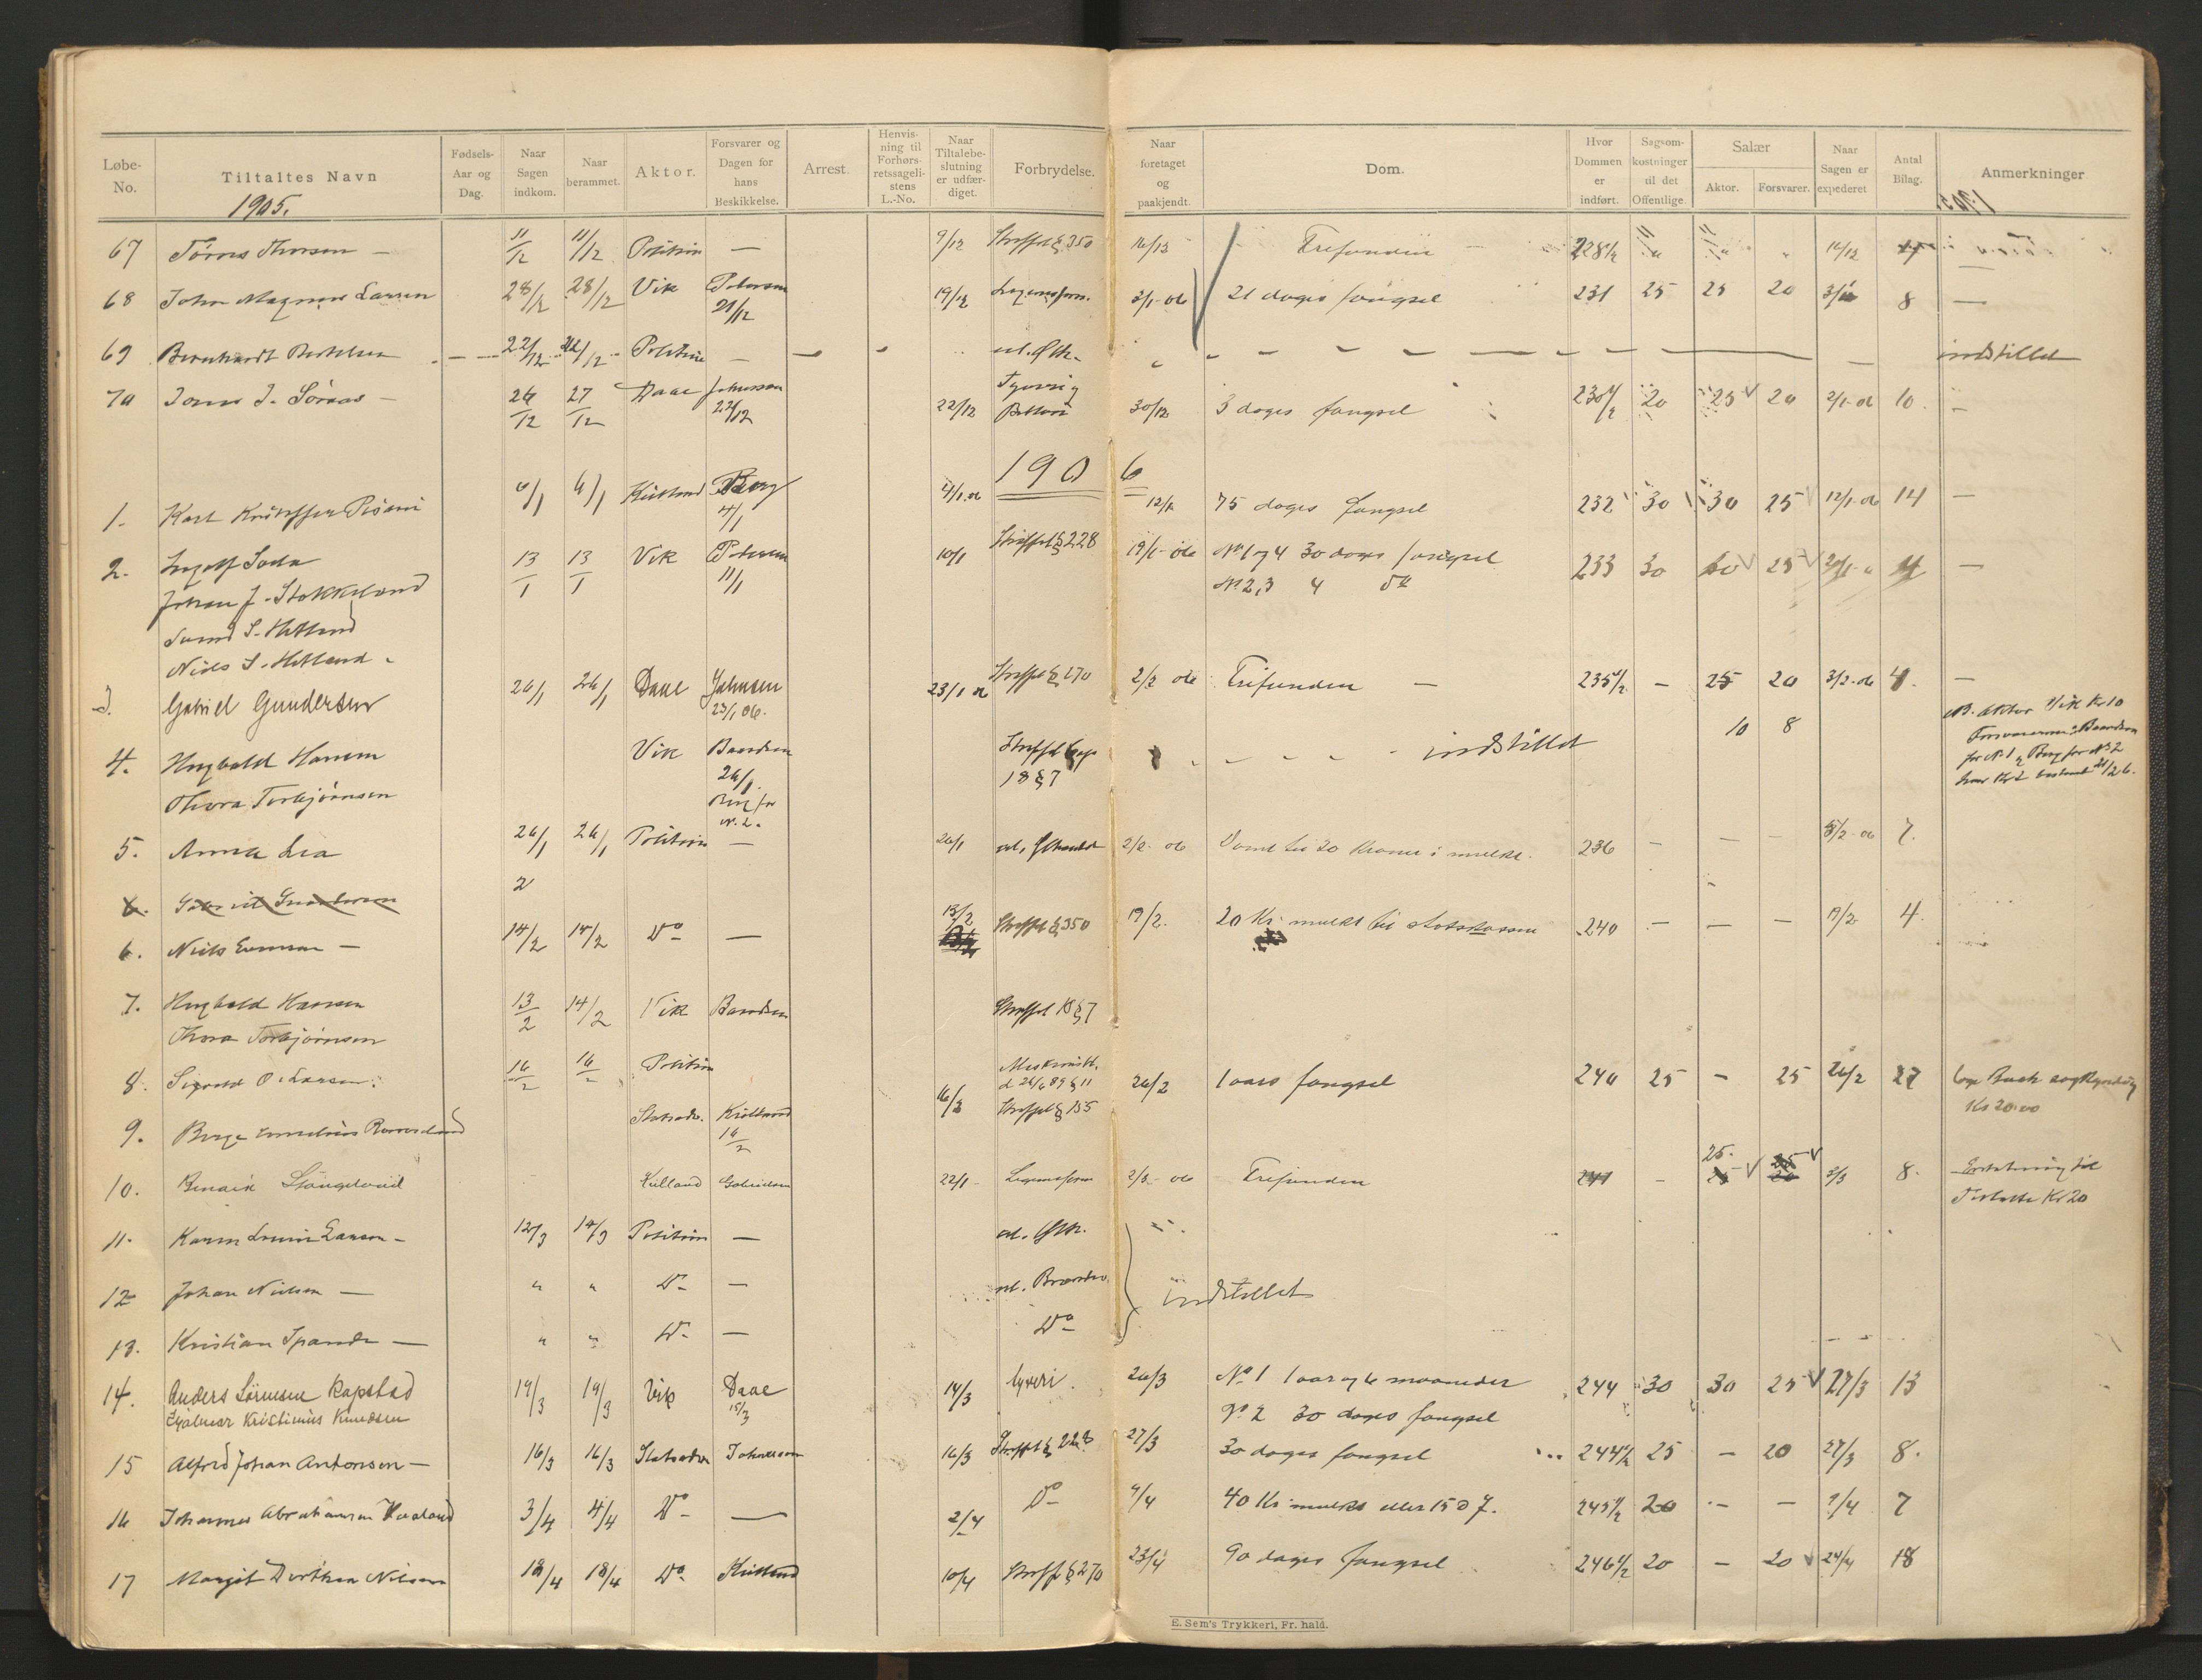 Løbe-No. Tiltaltes Navn Fødsels-Aar og Dag. Naar Sagen indkom. Naar berammet. Aktor. Forsvarer og Dagen for hans Beskikkelse. Arrest. Henvis-ning til Forhørs-retssageli-stens L.-No. Naar Tiltalebe-slutning er udfær-diget. Forbrydelse. Naar foretaget og paakjendt. Dom. Hvor Dommen er indført. Sagsom-kostninger til det Offentlige Salær Aktor. Forsvarer. Naar Sagen er expederet Antal Bilag. Anmerkninger
1905.
67 Thorsen — 11/12 11/12 Politiin — 9/12 Straffel § 350 16/12 Frifunden 228 1/2 16/12
68 John Magnus Larsen 28/12 28/12 Vik Petersen 21/12 19/12 3/1-06 21 dages fængsel 231 25 25 20 8 —
69 Bernhardt Bertelsen 22/12 Politiin — indstillet
70 Jonas J. 26/12 27/12 Daae Johnsen 22/12 22/12 Tyveri og Betleri 30/12 3 dages fængsel 230 1/2 20 25 20 2/1-06 10 —
1906
1. Karl Kristoffer 6/1 6/1 Kielland Berg 4/1 4/1 06 12/1 75 dages fængsel 232 30 30 25 12/1-06 14 —
2. 13/1 13/1 Vik Petersen 11/1 10/1 Straffel § 228 19/1-06 No 1 og 4 30 dages fængsel 233 30 25 —
Johan J. Stokkeland No 2, 3
Svend S. Hetland
Niels S. Hetland
3. Gabriel Gundersen 26/1 26/1 Daae Johnsen 23/1 06. 23/1 06 Straffel § 270 2/2 06 Frifunden — 235 1/2 — 25 20 3/2-06 4. —
4. Hugbald Hansen Vik Baardsen 26/1. Berg for No. 2. Straffel Cap 18 § 7 indstillet 10 8 NB. Aktor Vik Kr 10
Thora Torbjørnsen Forsvarerne: Baardsen for No 1 og Berg for No 2
5. Anna Lea 26/1 26/1 Politiin — 26/1 2/2-06 Dømt til 20 Kroner i mulkt. 236 — — — 7.
6. Gabriel Gundersen 2
6. Niels — 14/2 14/2 Do — 13/2 Straffel § 350 19/2. 20 Kr. mulkt til statskassen 240 — — — 19/2 4.
7. Hugbald Hansen 13/2 14/2 Vik Baardsen Straffel 18 § 7
Thora Torbjørnsen
8. Sigvald O. Larsen. 16/2 16/2 Politiin
9. Børge Statsadv. Kielland 16/2 16/2 Straffel § 155 26/2 1 aars fængsel 240 25 — 25 26/2 27 Kr 20.00
10. Kielland Gabrielsen 22/1 2/3-06 Frifunden 241 — 25. 25 3/3 8. Erstatning til Tiltalte Kr 20
11. Karen Larsen — 12/3 14/3 Politiin —
12 Johan Nielsen — " " Do — indstillet
13. Kristian — " " Do — Do
14. Anders Sørensen Rapstad 19/3 19/3 Vik Daae 15/3 14/3 tyveri. 26/3 No 1 1 aar og 6 maaneder 244 30 30 25 27/3 13
Hjalmar Kristinius Knudsen No 2 30 dages fængsel
15 Alfred Johan Antonsen — 16/3 16/3 Statsadv Johnsen 16/3 Straffel § 228 27/3 30 dages fængsel 244 1/2 25 — 20 27/3 8.
16 Johannes Abrahamsen Haaland 3/4 4/4 Do — 2/4 Do 9/4 40 Kr mulkt eller 15 d f. 245 1/2 20 — — 9/4 7
17 Margit Dorthea Nilsen 18/4 18/4 Do Kielland 10/4 Straffel § 270 23/4 90 dages fængsel 246 1/2 20 — 20 24/4 18
E. Sem's Trykkeri, Fr. hald.